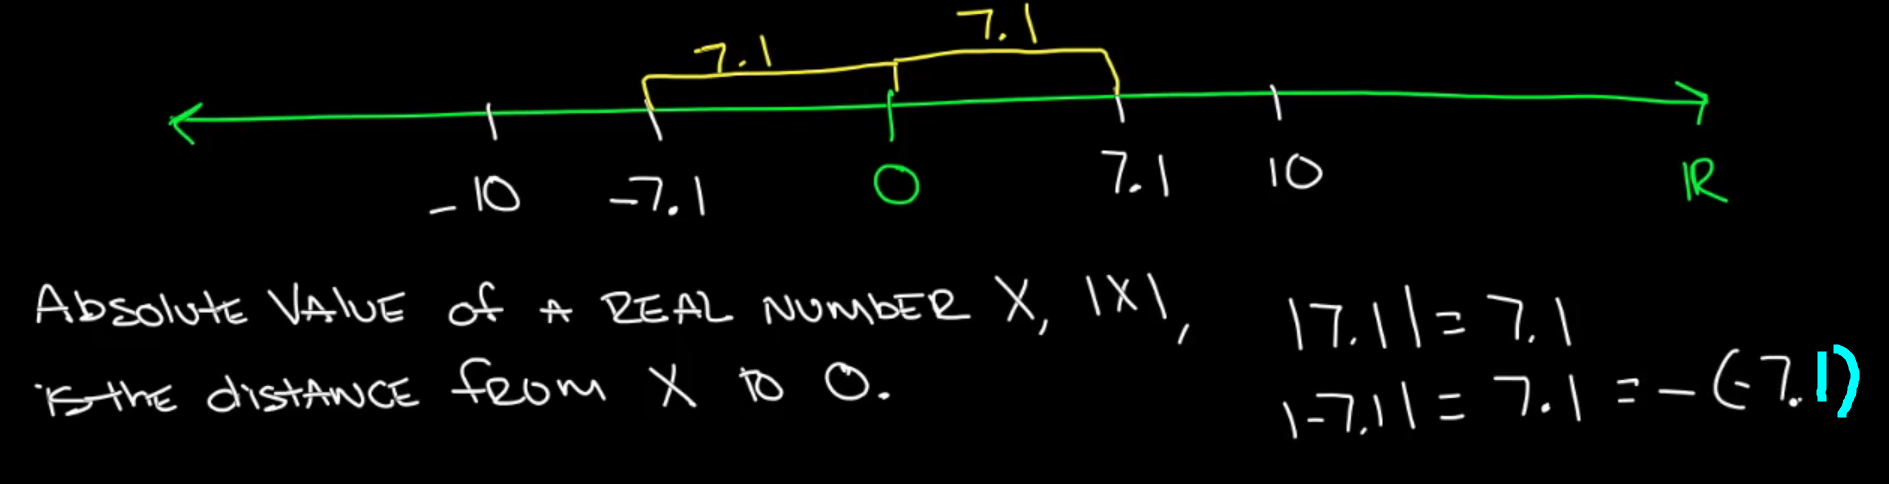 7.1 7.1
-10 -7.1 0 7.1 10 ℝ
Absolute Value of a REAL NUMBER X, |X|,
is the distance from X to 0.
|7.1| = 7.1
|-7.1| = 7.1 = -(-7.1)